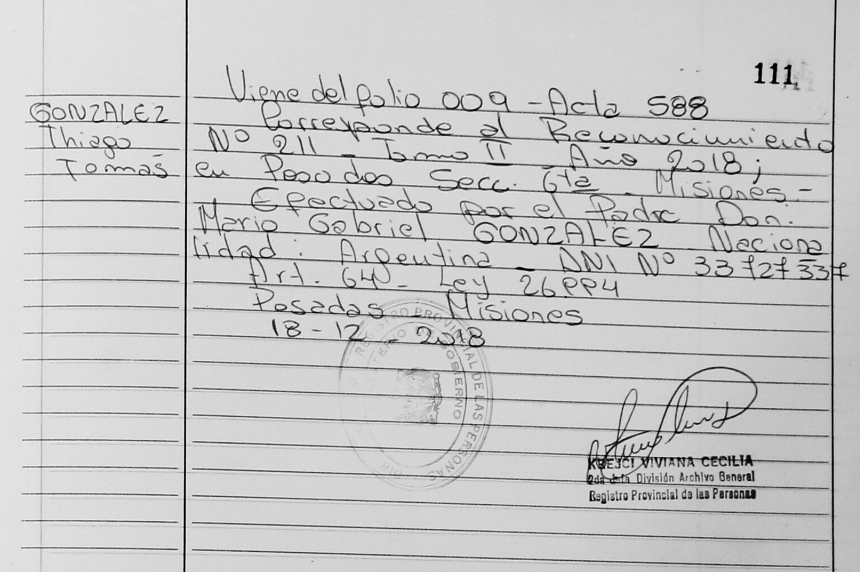 111
Viene del folio 009 - Acta 588
GONZALEZ
Thiago
Tomás
Corresponde al Reconocimiento
Nº 211 - Tomo II - Año 2018;
en Posadas Secc. 6ta - Misiones.-
Efectuado por el Padre Don:
Mario Gabriel GONZALEZ Naciona
lidad: Argentina - DNI Nº 33727337
Art. 64 - Ley 26994
Posadas - Misiones
18-12-2018
REGISTRO PROVINCIAL DE LAS PERSONAS
GOBIERNO
KREJCI VIVIANA CECILIA
División Archivo General
Registro Provincial de las Personas